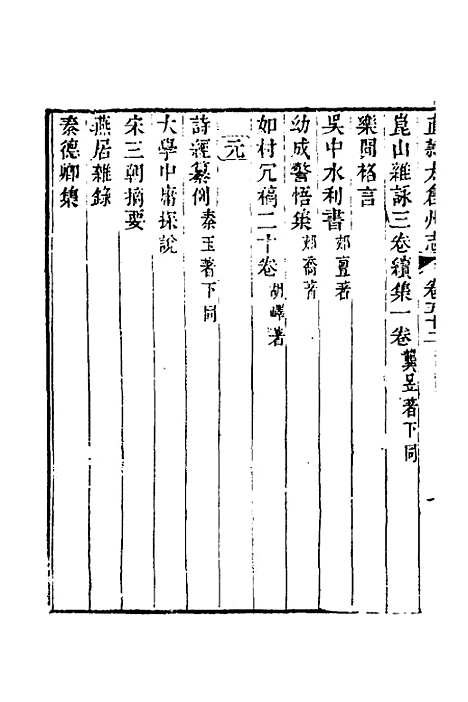 直隸太倉州志 卷五十二
崑山雜詠三卷續集一卷 龔昱著下同
樂閒格言
吳中水利書 郟亶著
幼成警悟集 郟喬著
如村冗稿二十卷 胡嶧著
元
詩經纂例 秦玉著下同
大學中庸探說
宋三朝摘要
燕居雜錄
秦德卿集